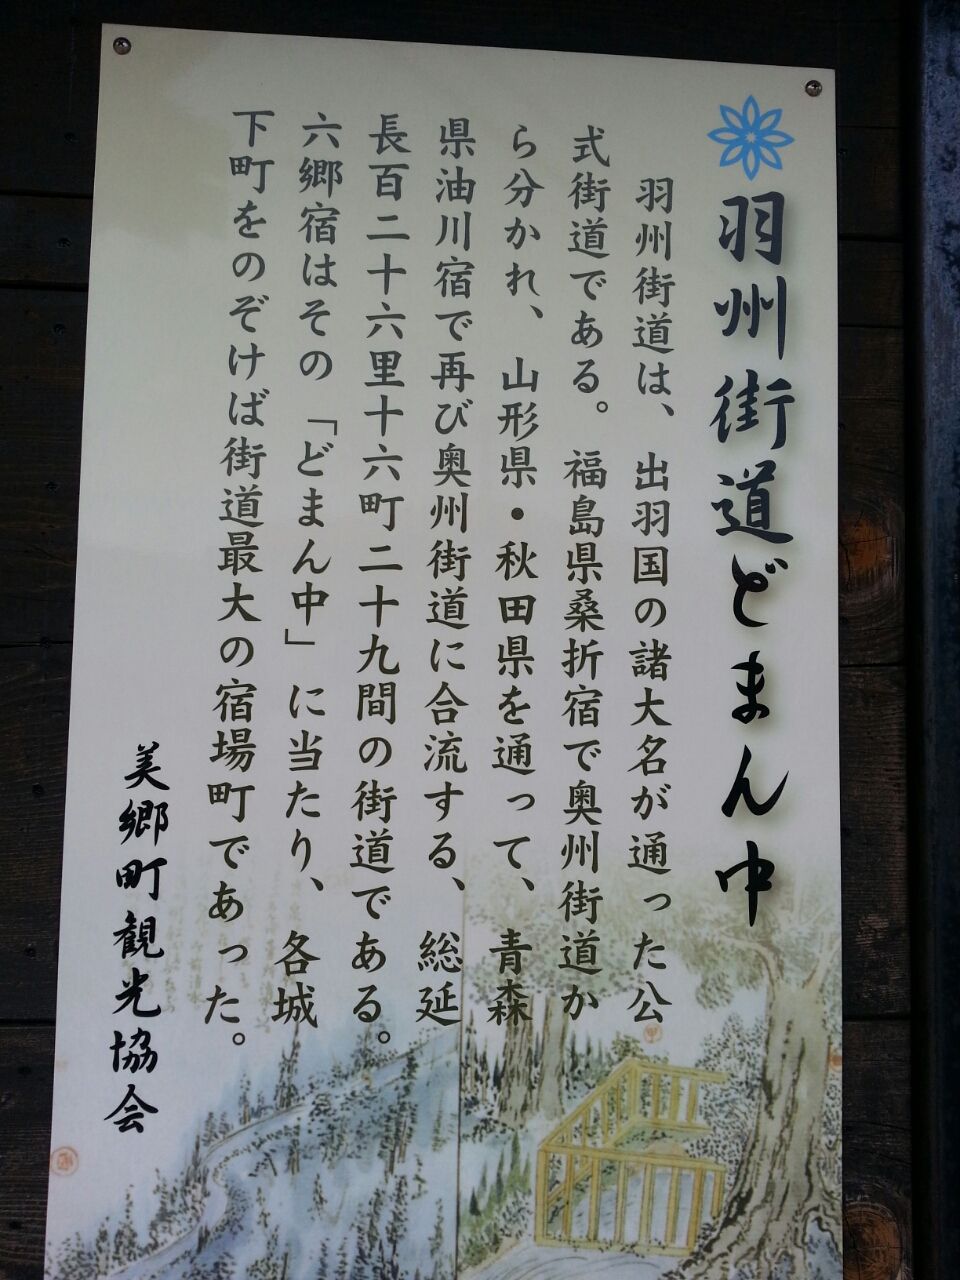 羽州街道どまん中
羽州街道は、出羽国の諸大名が通った公
式街道である。福島県桑折宿で奥州街道か
ら分かれ、山形県・秋田県を通って、青森
県油川宿で再び奥州街道に合流する、総延
長百二十六里十六町二十九間の街道である。
六郷宿はその「どまん中」に当たり、各城
下町をのぞけば街道最大の宿場町であった。
美郷町観光協会